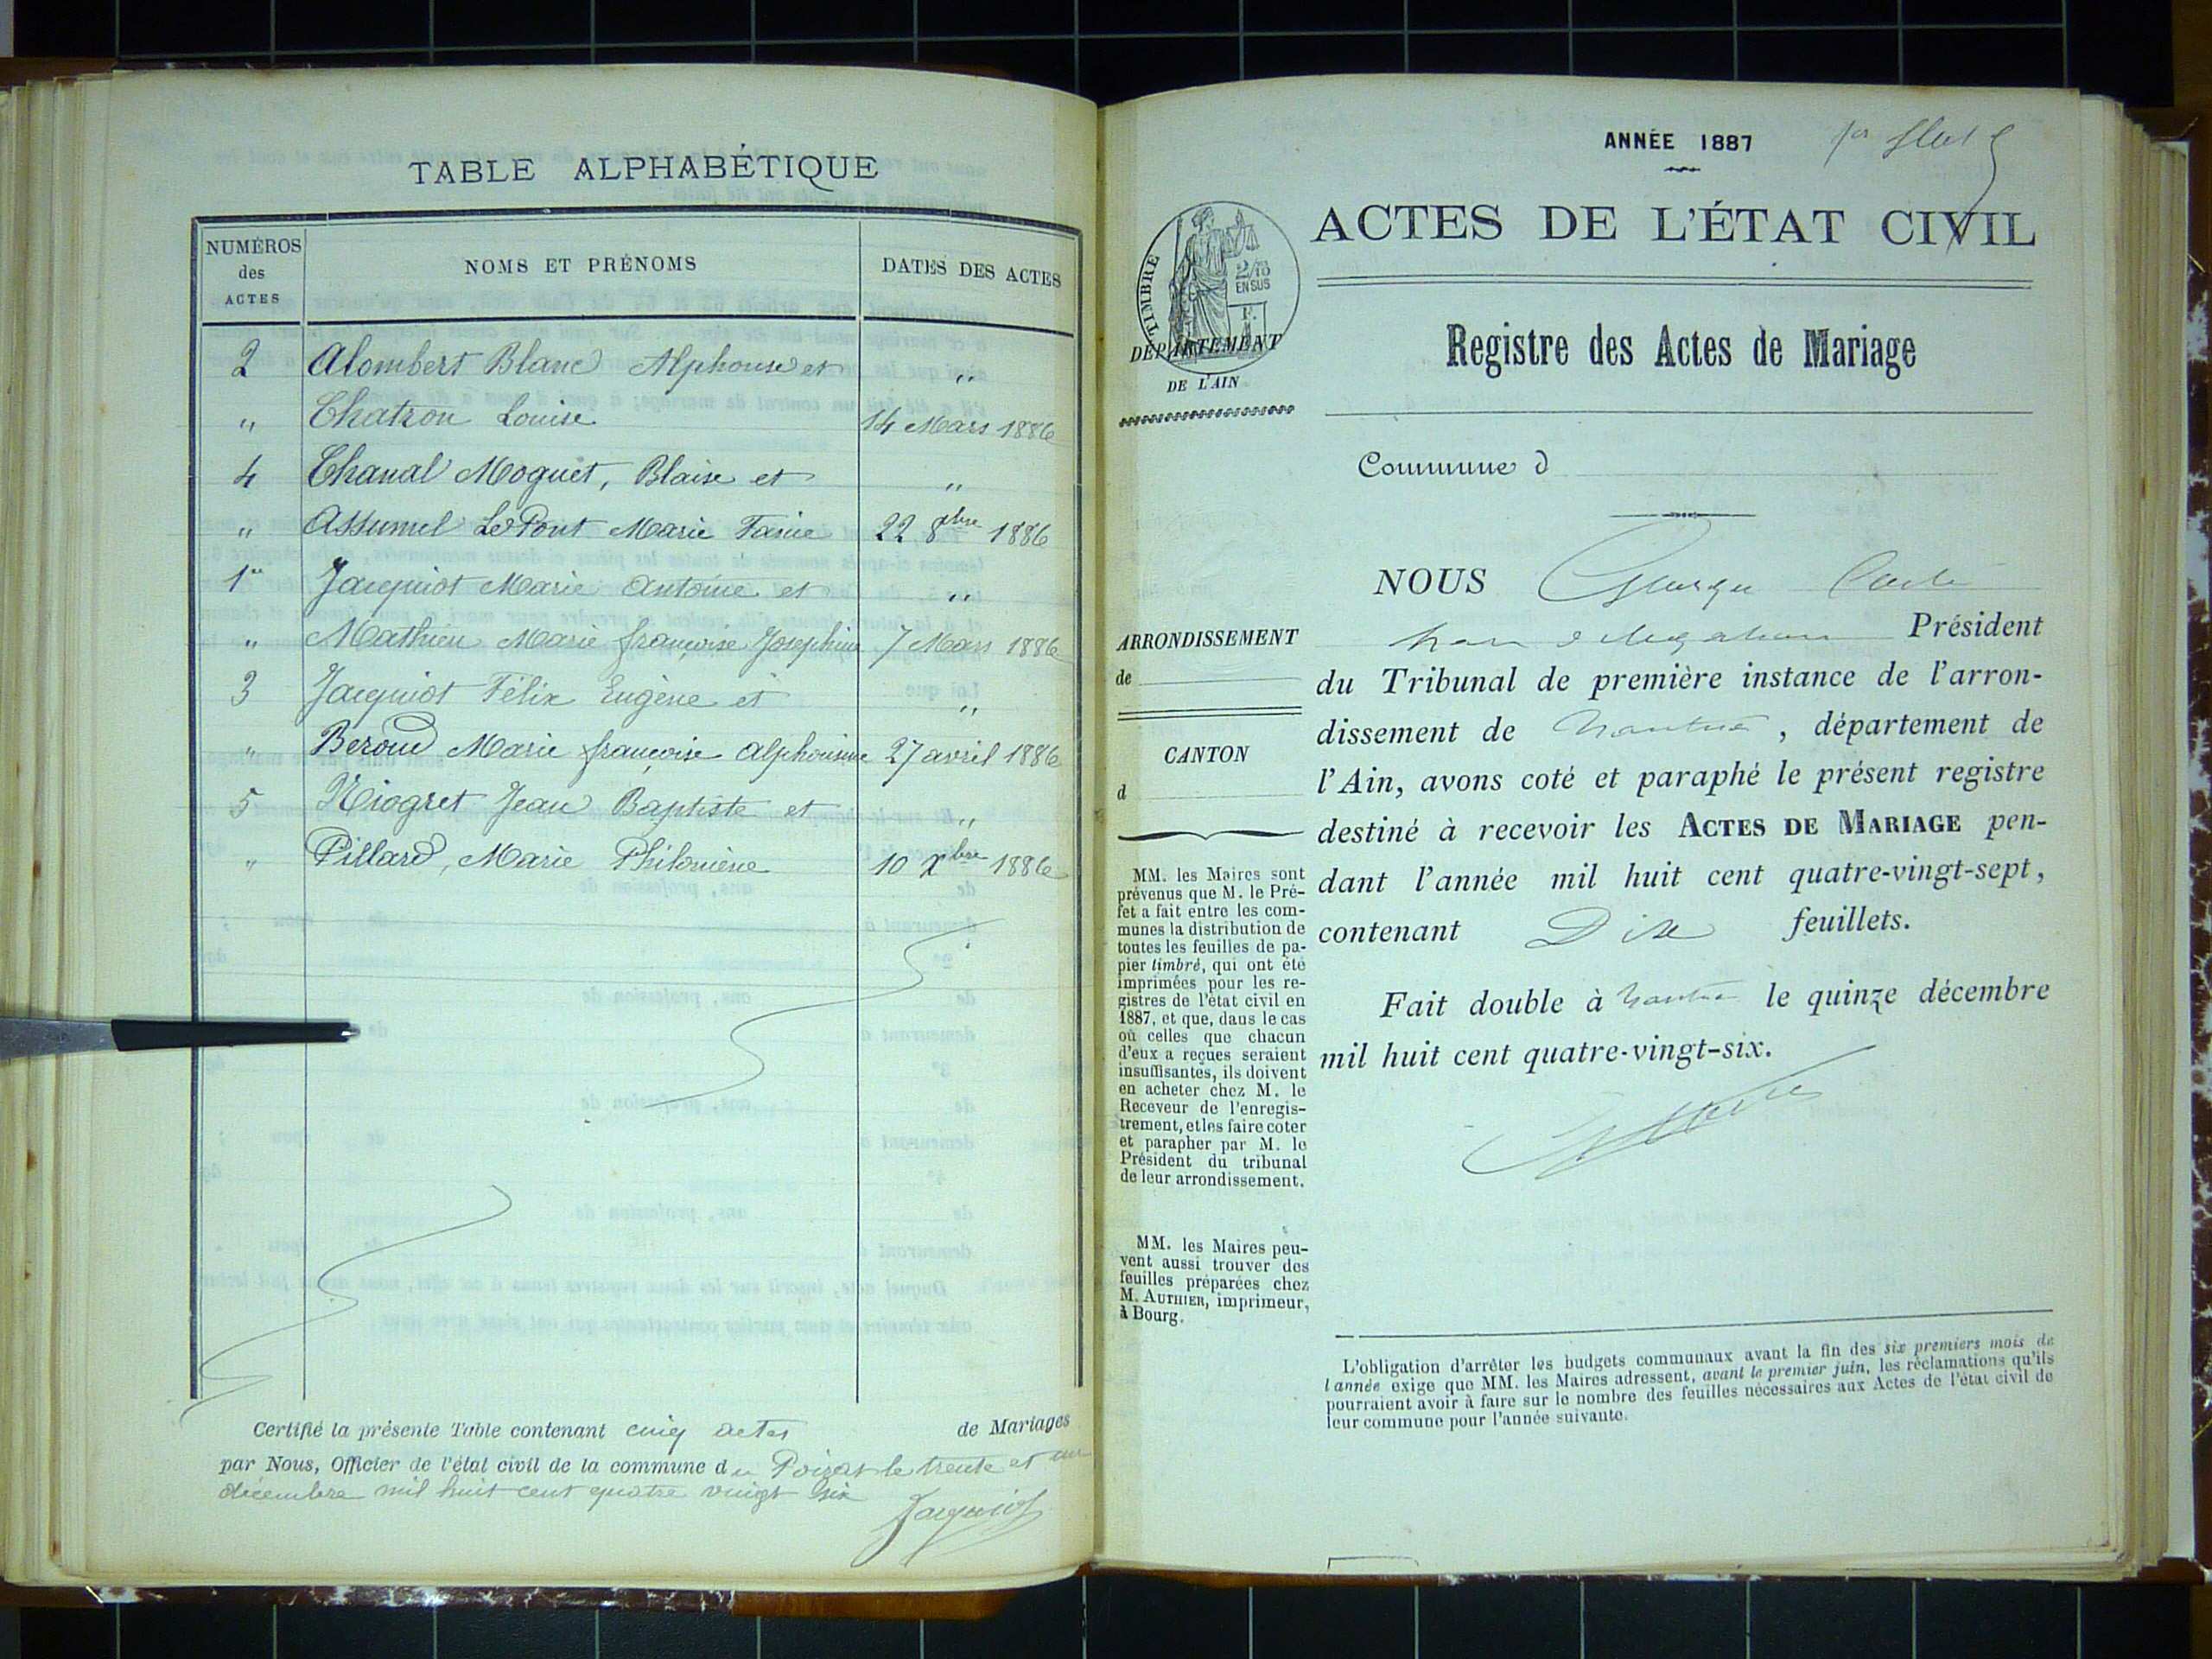 TABLE ALPHABÉTIQUE
NUMÉROS des ACTES
NOMS ET PRÉNOMS
DATES DES ACTES
2 Alombert Blanc Alphonse et "
" Chatron Louise 14 Mars 1886
4 Chanal Moguet, Blaise et "
" Assumel Le Pont Marie Fanie 22 8bre 1886
1er Jacquiot Marie Antoine et "
" Mathieu Marie françoise Josephine 7 Mars 1886
3 Jacquiot Félix Eugène et "
" Beroud Marie françoise Alphonsine 27 avril 1886
5 Niogret Jean Baptiste et "
" Pillard, Marie Philomène 10 Xbre 1886
Certifié la présente Table contenant cinq actes de Mariages
par Nous, Officier de l'état civil de la commune du Poizat le trente et un
décembre mil huit cent quatre vingt six
Jacquiot
ANNÉE 1887
1er
ACTES DE L'ÉTAT CIVIL
TIMBRE
2/10
EN SUS
DÉPARTEMENT
DE L'AIN
Registre des Actes de Mariage
Commune d
ARRONDISSEMENT
de
CANTON
d
MM. les Maires sont
prévenus que M. le Pré-
fet a fait entre les com-
munes la distribution de
toutes les feuilles de pa-
pier timbré, qui ont été
imprimées pour les re-
gistres de l'état civil en
1887, et que, dans le cas
où celles que chacun
d'eux a reçues seraient
insuffisantes, ils doivent
en acheter chez M. le
Receveur de l'enregis-
trement, et les faire coter
et parapher par M. le
Président du tribunal
de leur arrondissement.
MM. les Maires peu-
vent aussi trouver des
feuilles préparées chez
M. AUTHIER, imprimeur,
à Bourg.
NOUS
Président
du Tribunal de première instance de l'arron-
dissement de Nantua, département de
l'Ain, avons coté et paraphé le présent registre
destiné à recevoir les ACTES DE MARIAGE pen-
dant l'année mil huit cent quatre-vingt-sept,
contenant Dix feuillets.
Fait double à Nantua le quinze décembre
mil huit cent quatre-vingt-six.
L'obligation d'arrêter les budgets communaux avant la fin des six premiers mois de
l'année exige que MM. les Maires adressent, avant le premier juin, les réclamations qu'ils
pourraient avoir à faire sur le nombre des feuilles nécessaires aux Actes de l'état civil de
leur commune pour l'année suivante.